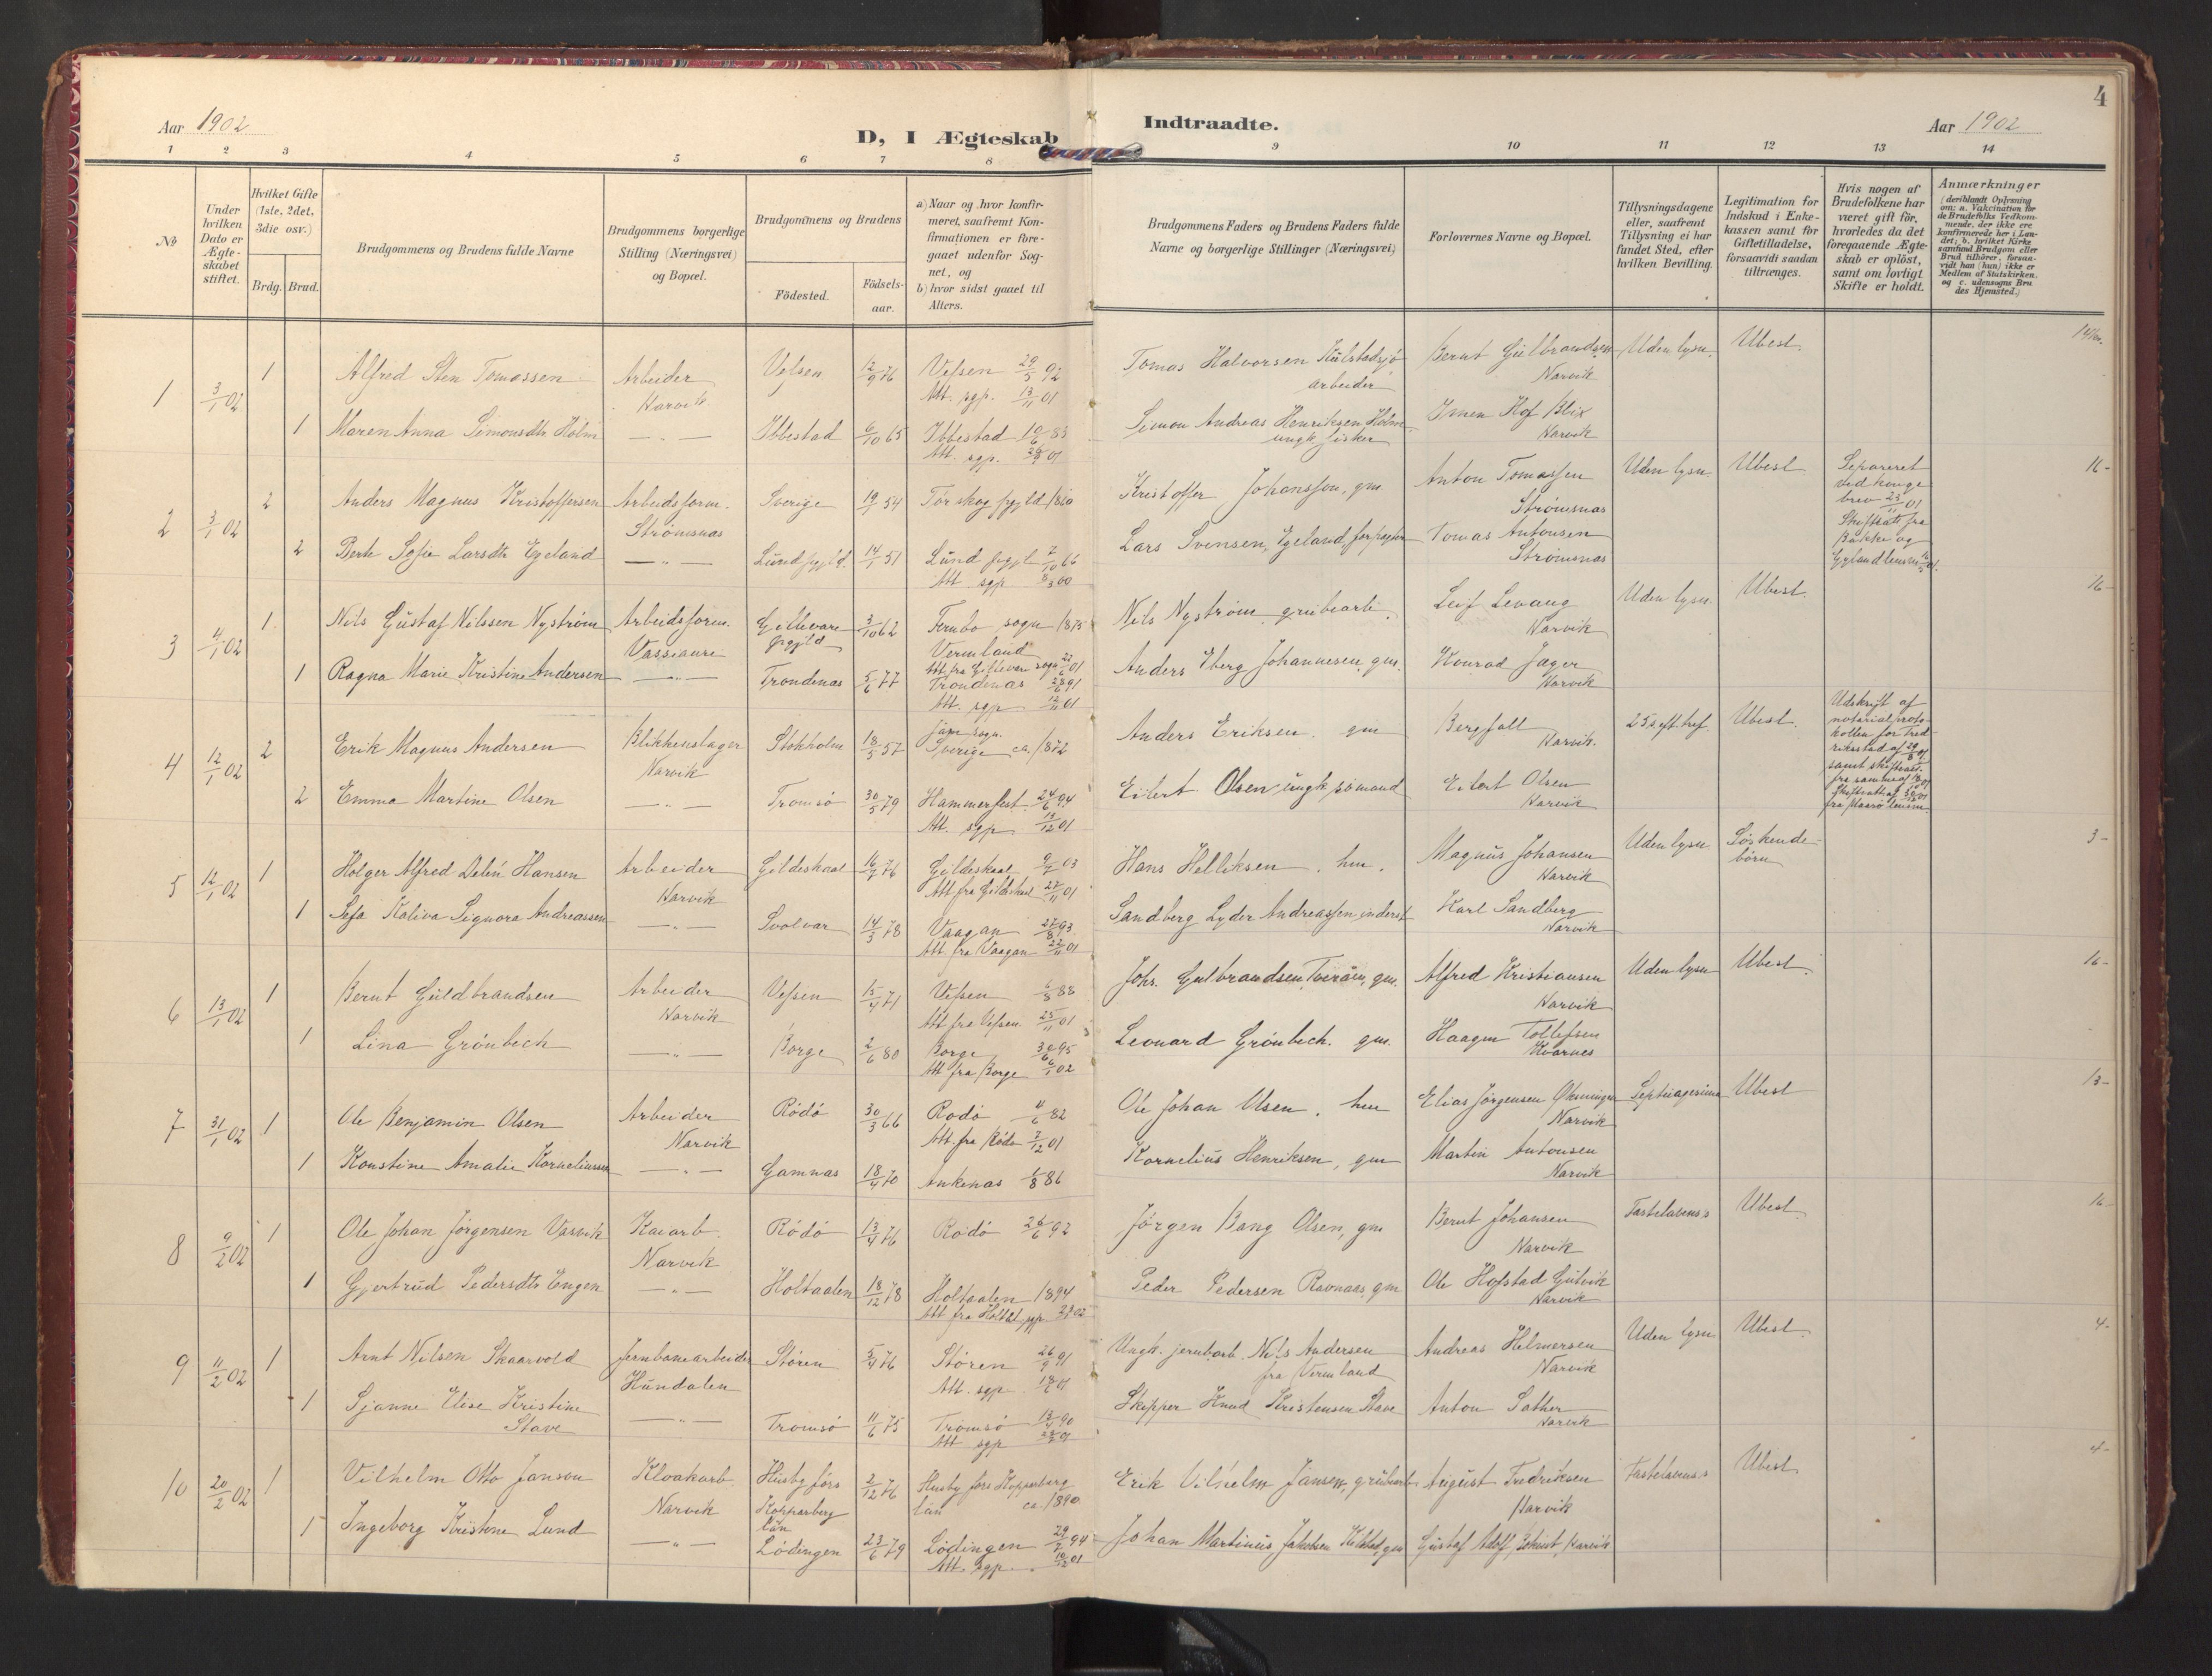 4
Aar 1902
D, I Ægteskab Indtraadte.
Aar 1902
1 2 3 4 5 6 7 8 9 10 11 12 13 14
No
Under hvilken Dato er Ægteskabet stiftet.
Hvilket Gifte (1ste, 2det, 3die osv.)
Brdg. Brud.
Brudgommens og Brudens fulde Navne
Brudgommens borgerlige Stilling (Næringsvei) og Bopæl.
Brudgommens og Brudens
Födested.
Födselsaar.
a) Naar og hvor konfirmeret, saafremt Konfirmationen er foregaaet udenfor Sognet, og
b) hvor sidst gaaet til Alters.
Brudgommens Faders og Brudens Faders fulde Navne og borgerlige Stillinger (Næringsvei)
Forlovernes Navne og Bopæl.
Tillysningsdagene eller, saafremt Tillysning ei har fundet Sted, efter hvilken Bevilling.
Legitimation for Indskud i Enkekassen samt for Giftetilladelse, forsaavidt saadan tiltrænges.
Hvis nogen af Brudefolkene har været gift för, hvorledes da det foregaaende Ægteskab er oplöst, samt om lovligt Skifte er holdt.
Anmærkninger (deriblandt Oplysning om: a. Vakcination for de Brudefolks Vedkommende, der ikke ere konfirmerede her i Landet; b. hvilket Kirkesamfund Brudgom eller Brud tilhörer, forsaavidt han (hun) ikke er Medlem af Statskirken. og c. udensogns Brudes Hjemsted.)
1 3/1 02 1 Alfred Sten Tomassen Arbeider Narvik Vefsen 12/9 76 Vefsen 29/5 92 Att. sgp. 13/11 01 Tomas Halvorsen Kulstadsjö arbeider Bernt Gulbrandsen Narvik Uden lysn. Ubesl.
1 Maren Anna Simonsdtr Holm — „ — Ibbestad 6/10 65 Ibbestad 19/6 83 Att. sgp. Simon Andreas Henriksen Holm ungk fisker Hof Blix Narvik
2 3/1 02 2 Anders Magnus Kristoffersen Arbeidsform. Strømsnas Sverige 19/1 54 Torskog pgjld 1860 Kristoffer Johansson, gm Anton Tomassen Strømsnas Uden lysn. Ubesl Separeret ved konge brev 23/11 01 16-
2 Berte Sofie Larsdtr Egeland — „ — Lund pgjld. 14/1 51 Lund pgjl 7/10 66 Att sgp Lars Svensen Egeland, forpagter Tomas Antonsen Strømsnas Skifteatt fra Bakke og Gyland lensm
3 4/1 02 1 Nils Gustaf Nilssen Nystrøm Arbeidsform. Vassiaure Gellevare pgjld 3/10 62 Fernbo sogn 1875 Vermland Att. fra Gellevare sogn Nils Nystrøm grubearb. Leif Levang Narvik Uden lysn Ubesl. 16-
1 Ragna Marie Kristine Andersen — „ — Trondenas 5/6 77 Trondenas Att. sgp. Anders Eberg Johannesen, gm. Konrad Jæger Narvik
4 12/1 02 2 Erik Magnus Andersen Blikkenslager Narvik Stokholm 18/5 57 Sverige ca. 1872 Anders Eriksen. gm Bergfall Narvik. Ubesl. Udskrift af notarialprotokollen for Fredriksstad af 29/8 01 samt skifteatt. fra samme
2 Emma Martine Olsen — „ — Tromsö 30/5 79 Hammerfest 24/6 94 Att. sgp. 13/12 01 Eilert Olsen ungk sömand Eilert Olsen Narvik
5 12/1 02 1 Holger Alfred Delén Hansen Arbeider Narvik Gildeskaal 16/7 76 Gildeskaal Att fra Gildeskaal Hans Helliksen. hm. Magnus Johansen Narvik Uden lysn Søskendebörn 3-
1 Sefa Kaliva Signora Andreassen — „ — Svolvar 14/3 78 Vaagan 27/8 93 Att. fra Vaagan Sandberg Lyder Andreassen inderst Karl Sandberg Narvik
6 13/1 02 1 Bernt Guldbrandsen Arbeider Narvik Vefsen 15/4 71 Vefsen Att fra Vefsen 25/11 01 Johs. Gulbrandsen Tveråen, gm. Alfred Kristiansen Narvik Uden lysn Ubesl. 16-
1 Lina Grönbech — „ — Borge 2/6 80 Borge 30/6 95 Att fra Borge 6/1 02 Leonard Grönbech. gm. Haagen Tollefsen Kvarnes
7 31/1 02 1 Ole Benjamin Olsen Arbeider Narvik Rödö 30/3 66 Rodö 4/6 82 Att. fra Rödö 7/12 01 Ole Johan Olsen. hm Elias Jörgensen Øksningen Narvik Septuagesima Ubesl 13-
1 Konstine Amalie Korneliussen — „ — Gamnas 18/4 70 Ankenas 1/8 86 Kornelius Henriksen, gm Martin Antonsen Narvik
8 9/2 02 1 Ole Johan Jörgensen Vasvik Kaiarb. Narvik Rödö 13/4 76 Rödö 26/6 92 Jörgen Bang Olsen, gm Bernt Johansen Narvik Fastelavens s Ubesl. 16-
1 Gjertrud Pedersdtr Engen — „ — Holtaalen 18/12 78 Holtaalen 1894 Att fra Holtaal. pgj Peder Pedersen Ravnaas, gm Ole Hofstad Gulvik Narvik
9 11/2 02 1 Arnt Nilsen Skaarvold Jernbanearbeider Hundalen Støren 5/4 76 Støren 26/9 91 Att. sgp. Ungk. jernbarb. Nils Andersen fra Vermland Andreas Helmersen Narvik Uden lysn Ubesl. 4-
1 Sjanne Elise Kristine Stave — „ — Tromsö 11/6 75 Tromsö 13/4 90 Att sgp Skipper Knud Kristensen Stave Anton Sather Narvik
10 20/2 02 1 Vilhelm Otto Janson Kloakarb. Narvik Husby fors Kopparberg län 2/12 76 Husby fors Kopparberg län ca. 1890. Erik Vilhelm Jansen, grubearb August Fredriksen Narvik Fastelavens s Ubesl. 4-
1 Ingeborg Kristine Lund — „ — Lödingen 23/6 79 Lödingen Att. sgp. Johan Martinus Jakobsen gm Gustaf Adolf Narvik